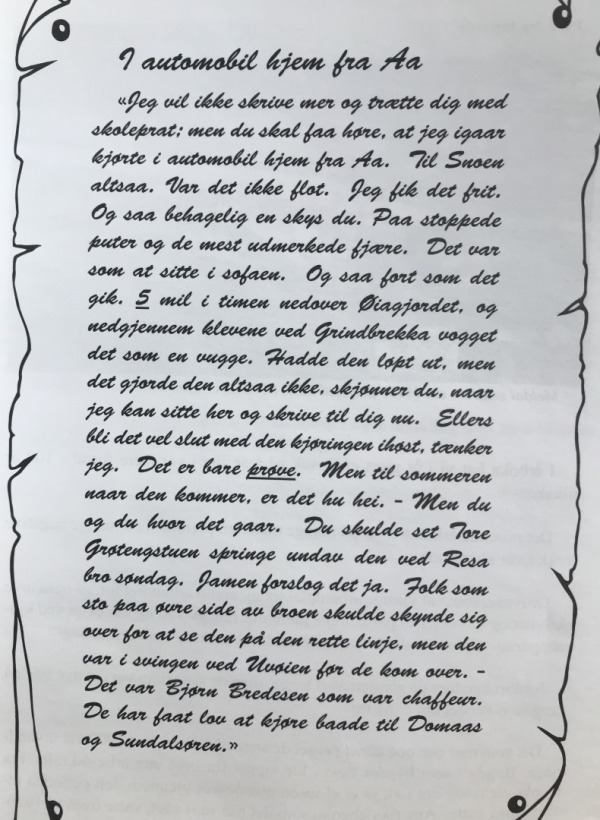 I automobil hjem fra Aa
«Jeg vil ikke skrive mer og trætte dig med
skoleprat; men du skal faa høre, at jeg igaar
kjørte i automobil hjem fra Aa. Til Snoen
altsaa. Var det ikke flot. Jeg fik det frit.
Og saa behagelig en skys du. Paa stoppede
puter og de mest udmerkede fjære. Det var
som at sitte i sofaen. Og saa fort som det
gik. 5 mil i timen nedover Øiagjordet, og
nedgjennem klevene ved Grindbrekka vogget
det som en vugge. Hadde den løpt ut, men
det gjorde den altsaa ikke, skjønner du, naar
jeg kan sitte her og skrive til dig nu. Ellers
bli det vel slut med den kjøringen ihøst, tænker
jeg. Det er bare prøve. Men til sommeren
naar den kommer, er det hu hei. - Men du
og du hvor det gaar. Du skulde set Tore
Grøtengstuen springe undav den ved Resa
bro søndag. Jamen forslog det ja. Folk som
sto paa øvre side av broen skulde skynde sig
over for at se den på den rette linje, men den
var i svingen ved Uvøien før de kom over. -
Det var Bjørn Bredesen som var chaffeur.
De har faat lov at kjøre baade til Domaas
og Sundalsøren.»